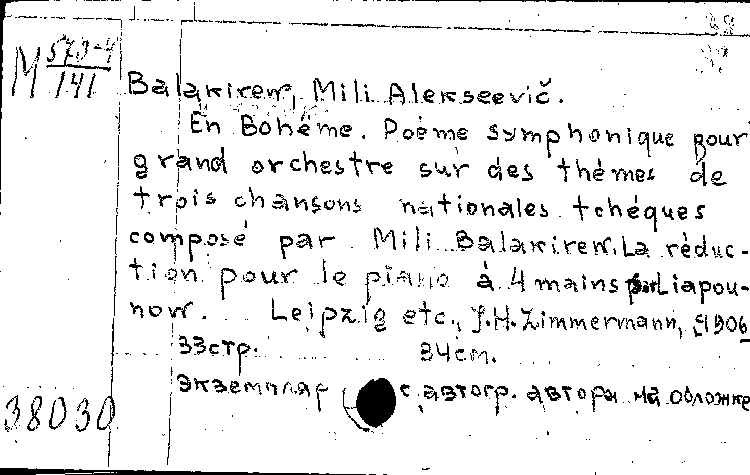 M 573-4/141
Balakirew, Mili Alekseevič.
En Bohéme. Poéme symphonique pour
grand orchestre sur des thémes de
trois chansons nationales tchéques
composé par Mili Balakirew. La réduc-
tion pour le piano à 4 mains par Liapou-
now. Leipzig etc., J.H. Zimmermann, 1906
33 стр. 34 см.
Экземпляр с автогр. автора на обложке
38030